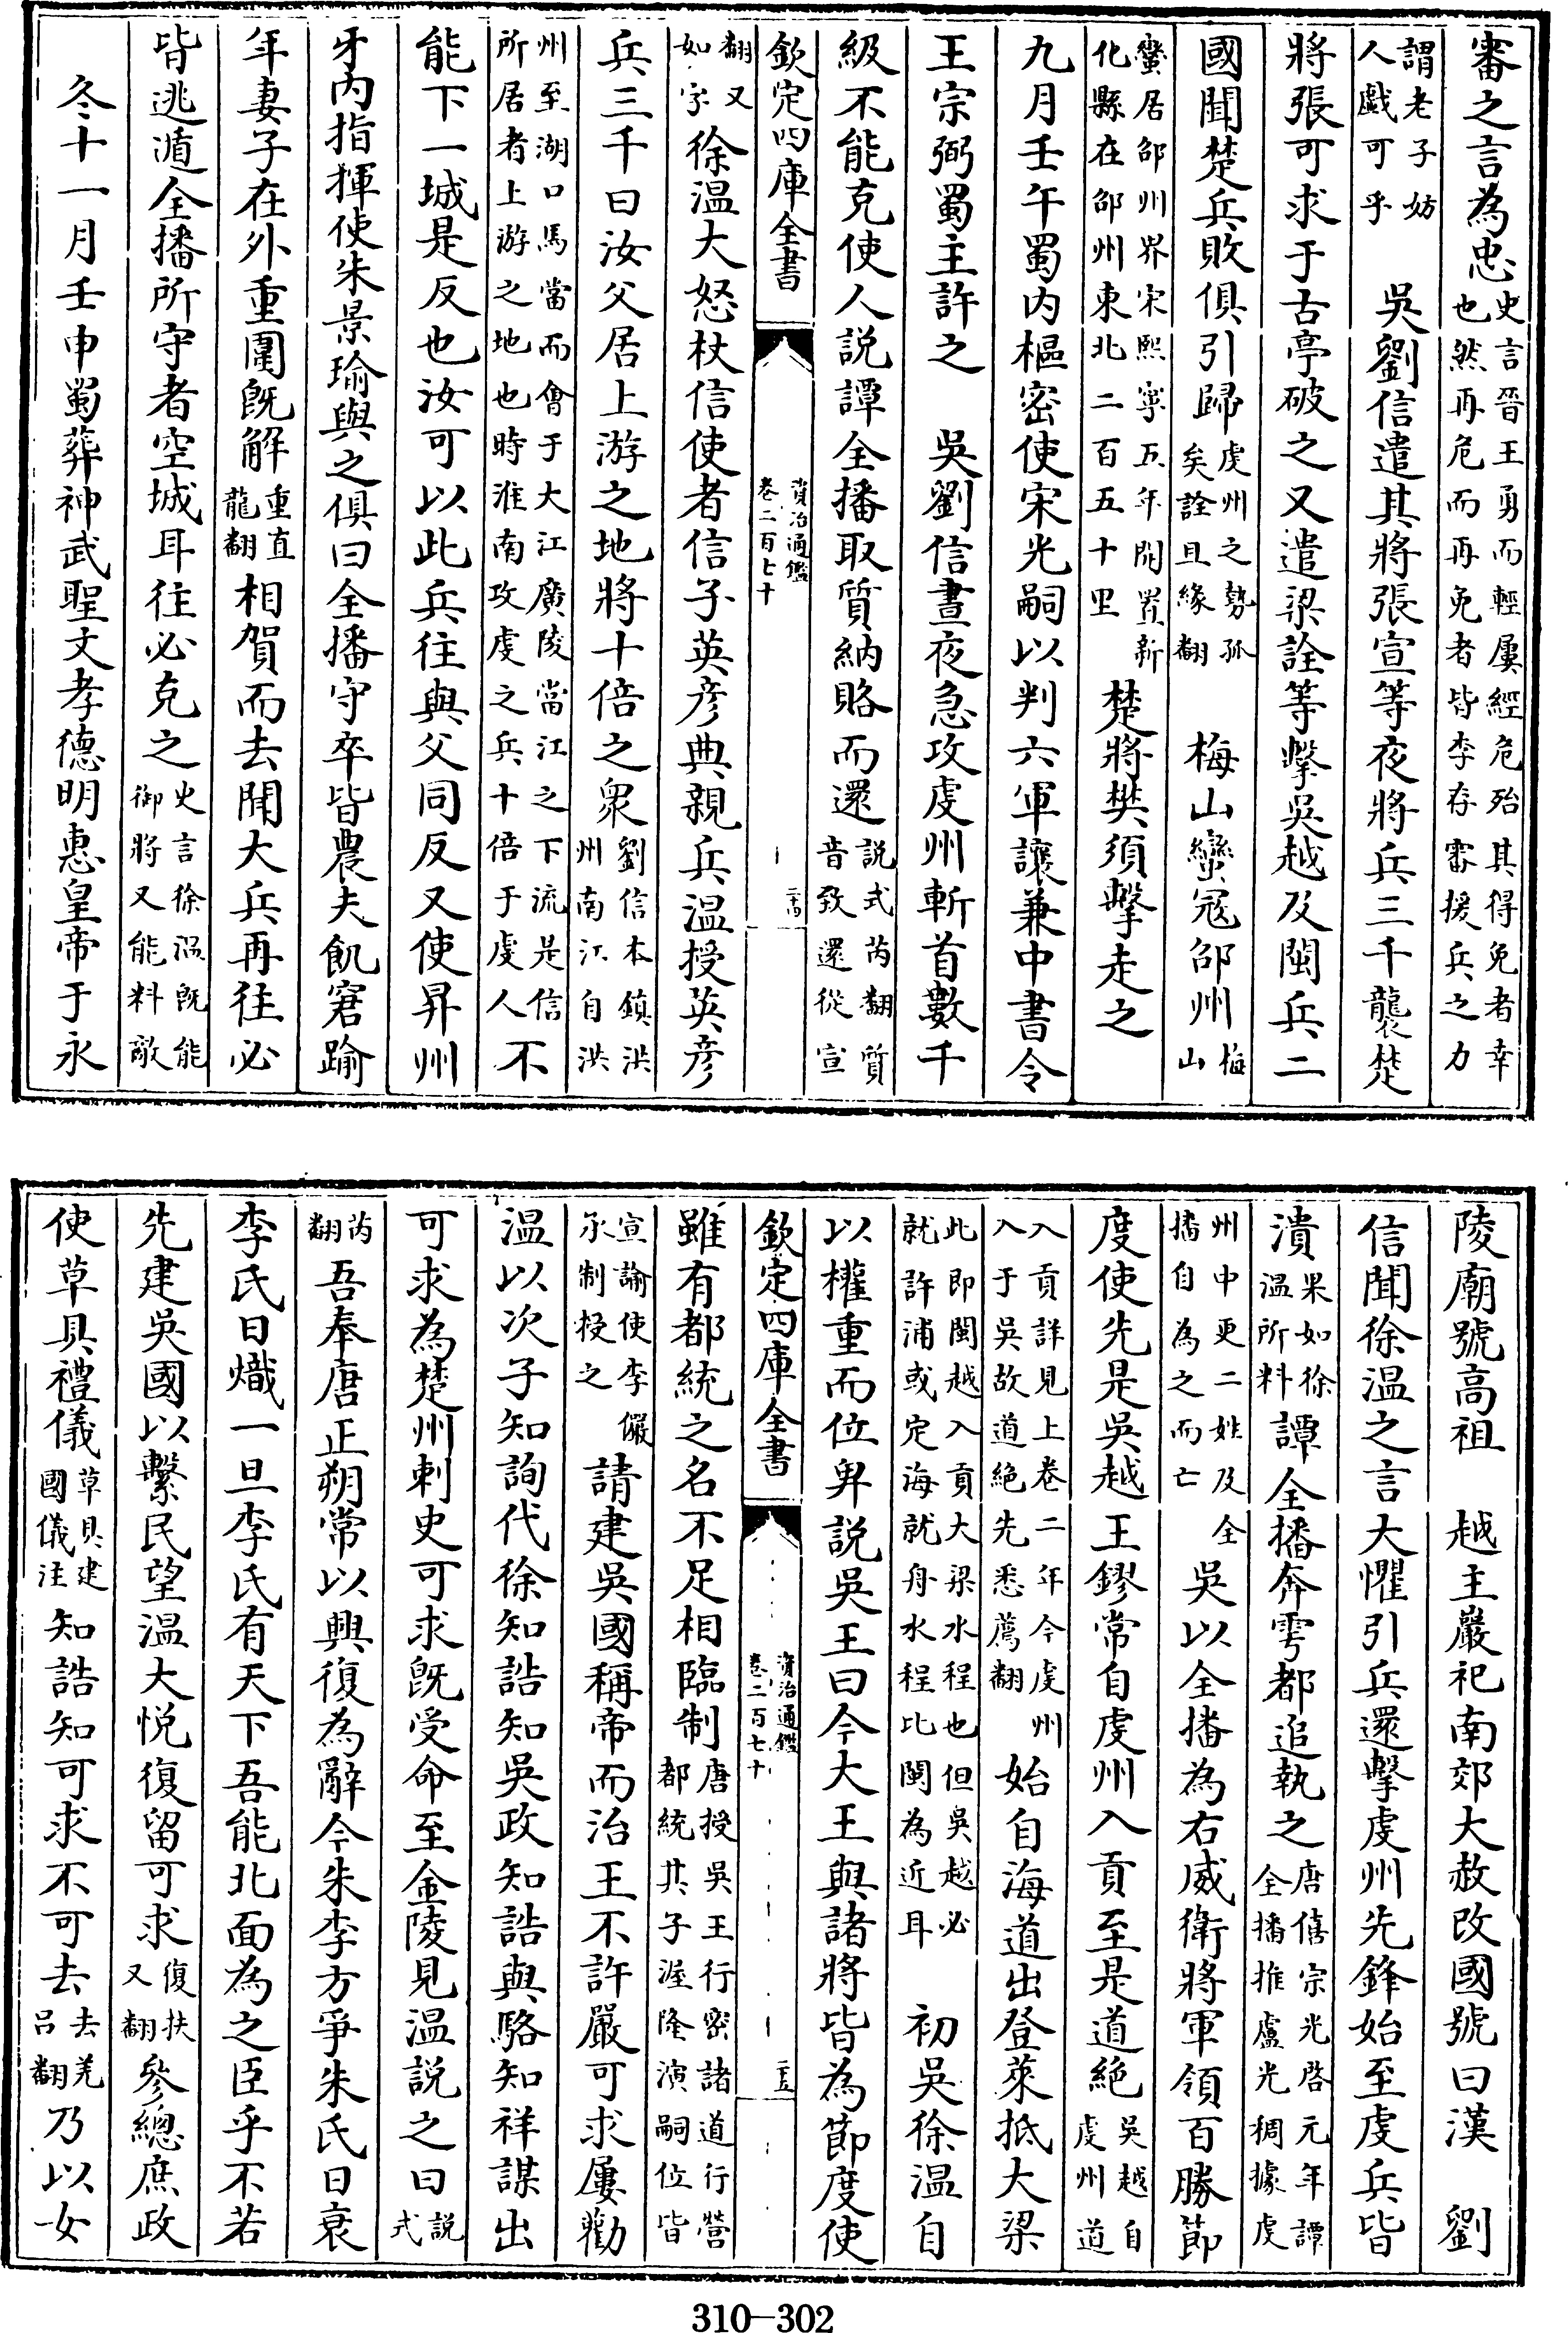 審之言為忠史言晉王勇而輕屢經危殆其得免者幸也然再危而再免者皆李存審援兵之力
謂老子妨人戲可乎　吳劉信遣其將張宣等夜將兵三千襲楚
將張可求于古亭破之又遣梁詮等擊吳越及閩兵二
國聞楚兵敗俱引歸䖍州之勢孤矣詮且緣翻　梅山蠻寇邵州梅山
蠻居邵州界宋熙寧五年開置新化縣在邵州東北二百五十里　楚將樊須擊走之
九月壬午蜀内樞密使宋光嗣以判六軍讓兼中書令
王宗弼蜀主許之　吳劉信晝夜急攻䖍州斬首數千
級不能克使人説譚全播取質納賂而還説式芮翻質音致還從宣
欽定四庫全書　資治通鑑卷二百七十　二十四
翻又如字徐温大怒杖信使者信子英彦典親兵温授英彦
兵三千曰汝父居上游之地將十倍之衆劉信本鎮洪州南江自洪
州至湖口馬當而會于大江廣陵當江之下流是信所居者上游之地也時淮南攻䖍之兵十倍于䖍人不
能下一城是反也汝可以此兵往與父同反又使昇州
牙内指揮使朱景瑜與之俱曰全播守卒皆農夫飢窘踰
年妻子在外重圍既解重直龍翻相賀而去聞大兵再往必
皆逃遁全播所守者空城耳往必克之史言徐温既能御將又能料敵
冬十一月壬申蜀葬神武聖文孝德明惠皇帝于永
陵廟號高祖　越主巖祀南郊大赦改國號曰漢　劉
信聞徐温之言大懼引兵還擊䖍州先鋒始至䖍兵皆
潰果如徐温所料譚全播奔雩都追執之唐僖宗光啓元年譚全播推盧光稠據䖍
州中更二姓及全播自為之而亡　吳以全播為右威衛將軍領百勝節
度使先是吳越王鏐常自䖍州入貢至是道絶吳越自䖍州道
入貢詳見上卷二年今䖍州入于吳故道絶先悉薦翻始自海道出登萊抵大梁
此即閩越入貢大梁水程也但吳越必就許浦或定海就舟水程比閩為近耳　初吳徐温自
以權重而位卑説吳王曰今大王與諸將皆為節度使
欽定四庫全書　資治通鑑卷二百七十　二十五
雖有都統之名不足相臨制唐授吳王行密諸道行營都統其子渥隆演嗣位皆
宣諭使李儼承制授之請建吳國稱帝而治王不許嚴可求屢勸
温以次子知詢代徐知誥知吳政知誥與駱知祥謀出
可求為楚州刺史可求既受命至金陵見温説之曰説式
芮翻吾奉唐正朔常以興復為辭今朱李方爭朱氏日衰
李氏日熾一旦李氏有天下吾能北面為之臣乎不若
先建吳國以繫民望温大悦復留可求復扶又翻參總庶政
使草具禮儀草具建國儀注知誥知可求不可去去羌吕翻乃以女
310-302